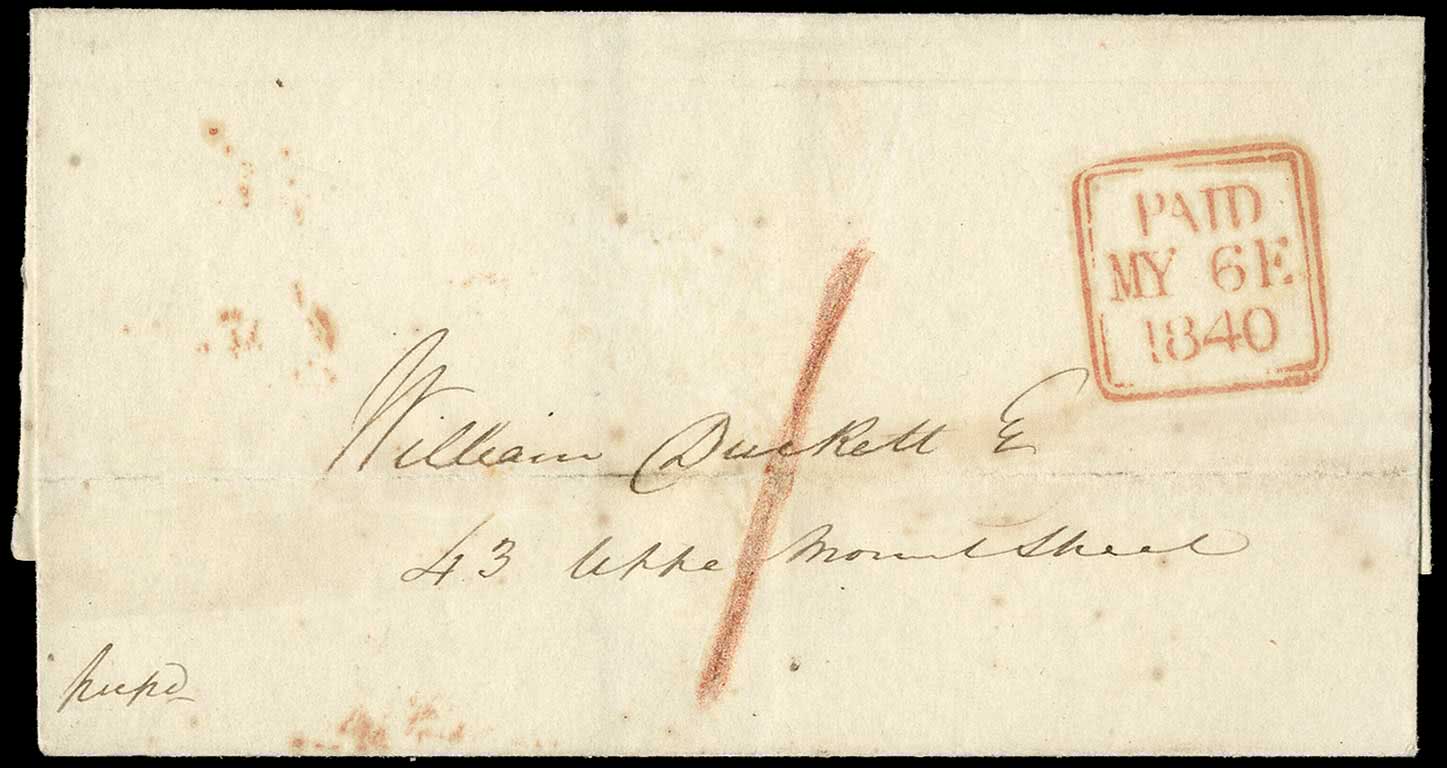 PAID
MY 6 E
1840
William Duckett E
43 Uppe Mount Street